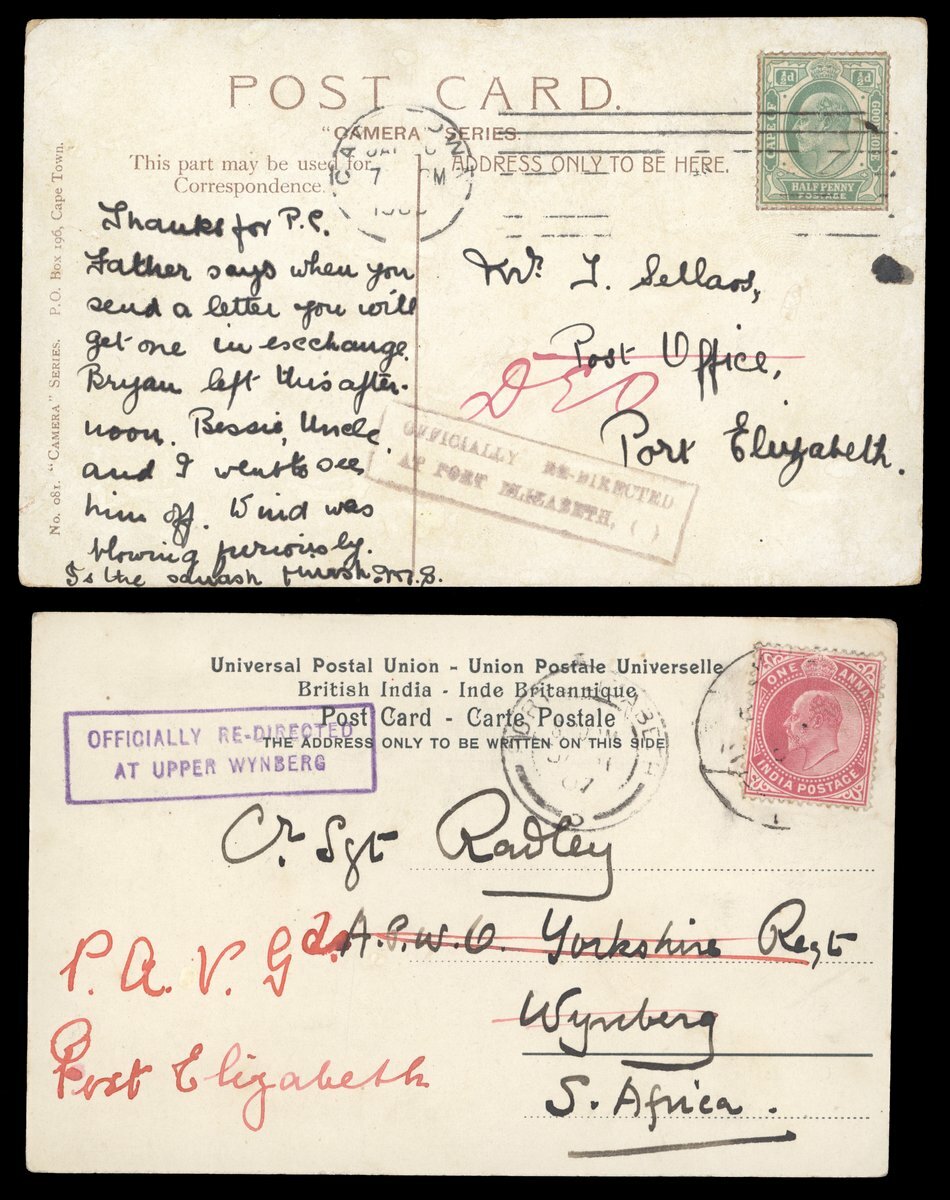 POST CARD.
"CAMERA" SERIES.
This part may be used for
Correspondence.
ADDRESS ONLY TO BE HERE.
No. 081. "CAMERA" SERIES. P.O. Box 196, Cape Town.
CAPE OF GOOD HOPE
½d ½d
HALF PENNY
POSTAGE
7 PM
Thanks for P.C.
Father says when you
send a letter you will
get one in exchange.
Bryan left this after-
noon. Bessie, Uncle
and I went to see
him off. Wind was
blowing furiously.
Is the squash M.S.
Mr. Sellars,
Post Office,
DEO
Port Elizabeth.
OFFICIALLY RE-DIRECTED
AT PORT ELIZABETH, ( )
Universal Postal Union - Union Postale Universelle
British India - Inde Britannique
Post Card - Carte Postale
THE ADDRESS ONLY TO BE WRITTEN ON THIS SIDE
ONE ANNA
INDIA POSTAGE
OFFICIALLY RE-DIRECTED
AT UPPER WYNBERG
07
Cr. Sgt Radley
A.P.W.O. Yorkshire Regt
Wynberg
S. Africa.
P.A.V. Gds.
Port Elizabeth